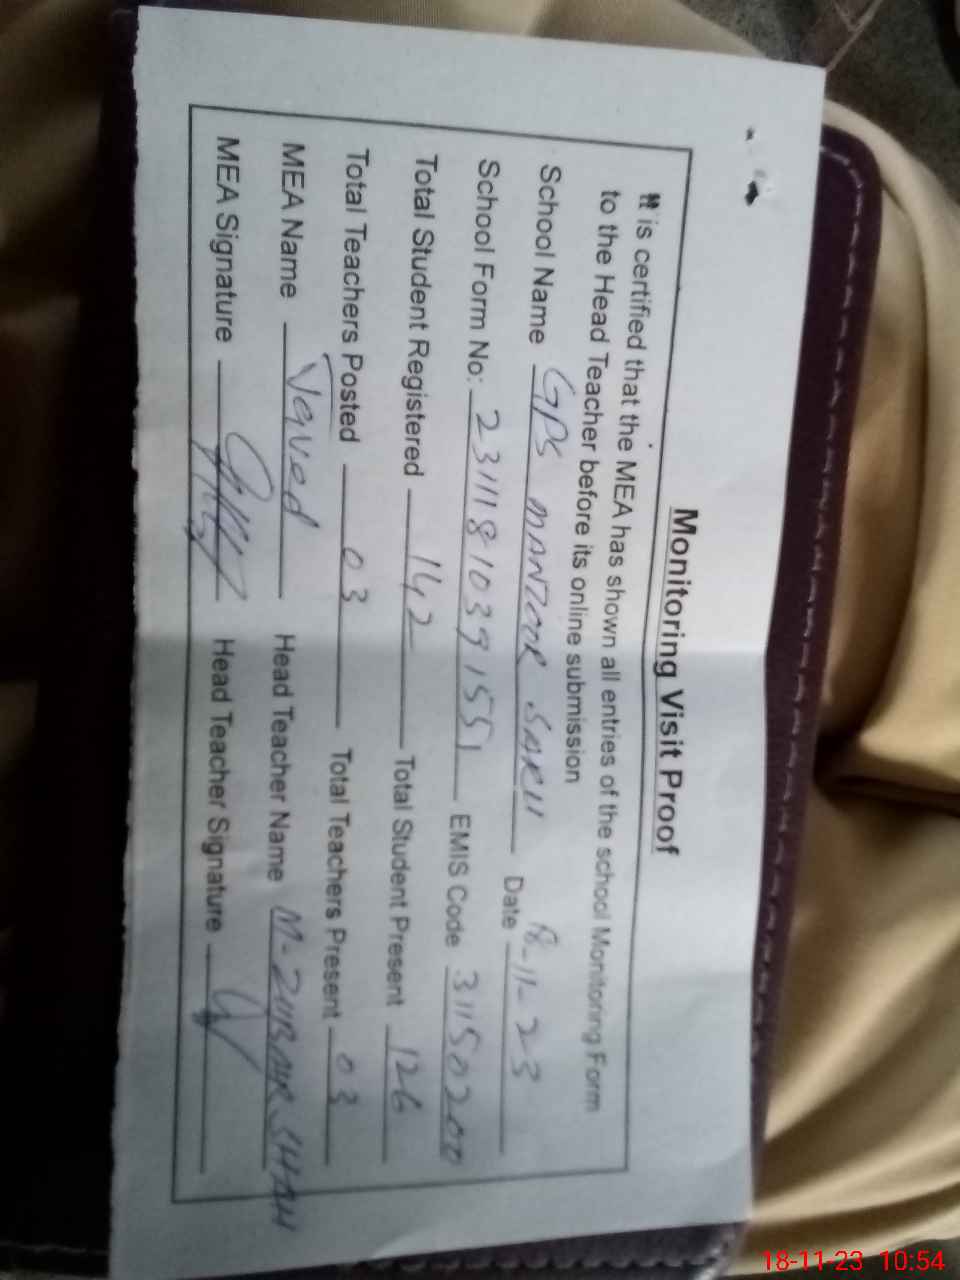 Monitoring Visit Proof
It is certified that the MEA has shown all entries of the school Monitoring Form
to the Head Teacher before its online submission
School Name GPS MANZOOR SARII Date 18-11-23
School Form No: 23111810391551 EMIS Code 31150200
Total Student Registered 142 Total Student Present 126
Total Teachers Posted 03 Total Teachers Present 03
MEA Name Javed Head Teacher Name M-ZUBAIR SHAH
MEA Signature Head Teacher Signature
18-11-23 10:54